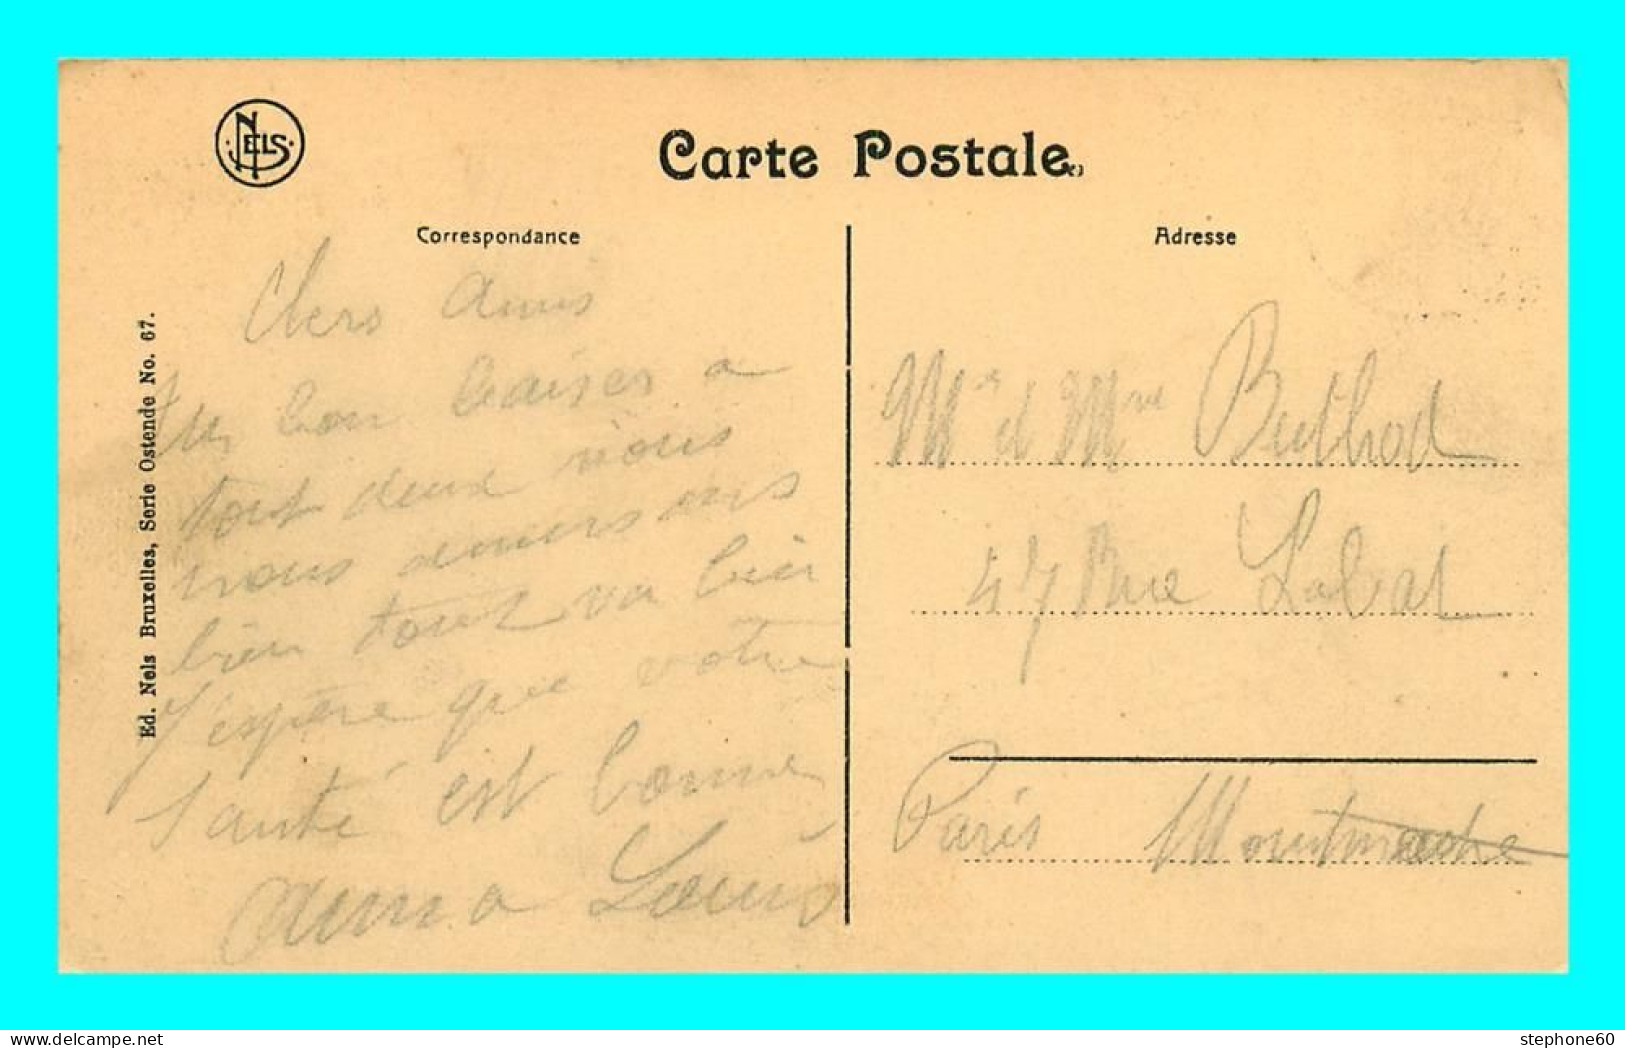 NELS
Carte Postale
Correspondance
Adresse
Ed. Nels Bruxelles, Serie Ostende No. 67.
Chers Amis
bon baisers a
tout deux nous
nous
bien tout va bien
J'espère que votre
Santé est bonne
Louis
Mr et Mme Buthod
47 Rue Labat
Paris Montmartre
www.delcampe.net
stephone60